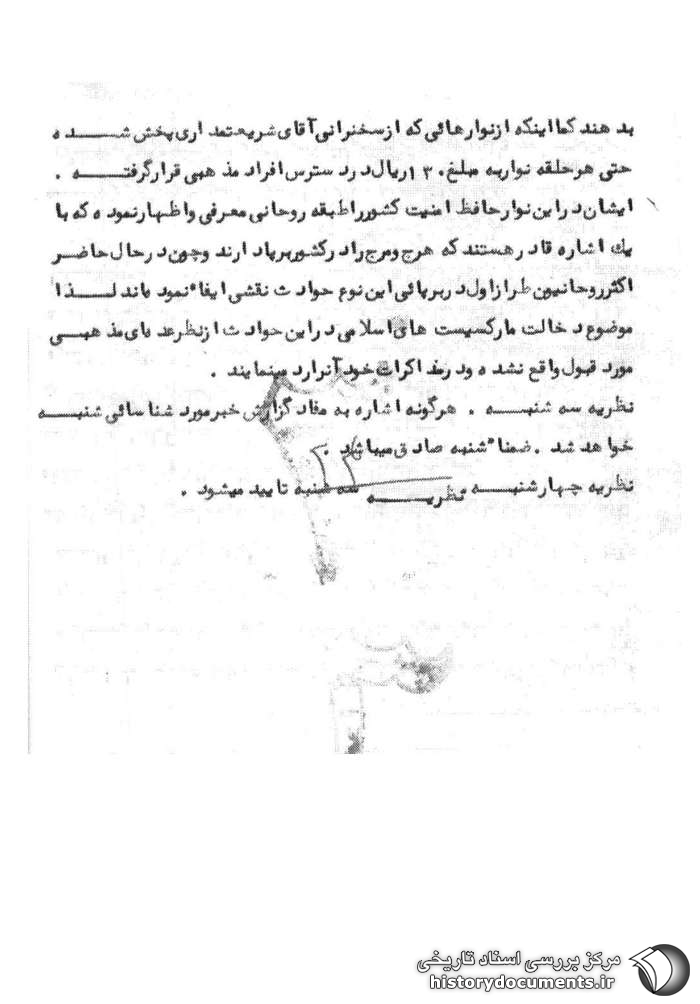 بدهند کما اینکه از نوارهائی که از سخنرانی آقای شریعتمداری پخش شده
حتی هر حلقه نوار به مبلغ ۱۲۰ ریال در دسترس افراد مذهبی قرار گرفته .
ایشان در این نوار حافظ امنیت کشور را طبقه روحانی معرفی و اظهار نموده که با
یك اشاره قادر هستند که هرج و مرج را در کشور برپا دارند و چون در حال حاضر
اکثر روحانیون طراز اول در برپائی این نوع حوادث نقشی ایفاء نموده‌اند لذا
موضوع دخالت مارکسیست های اسلامی در این حوادث از نظر عده‌ای مذهبی
مورد قبول واقع نشده و در مذاکرات خود آنرا رد مینمایند .
نظریه سه شنبه . هرگونه اشاره به مفاد گزارش خبر مورد شناسائی شنبه
خواهد شد . ضمناً شنبه صادق میباشد .
نظریه چهارشنبه . نظریه سه شنبه تایید میشود .
مرکز بررسی اسناد تاریخی
historydocuments.ir